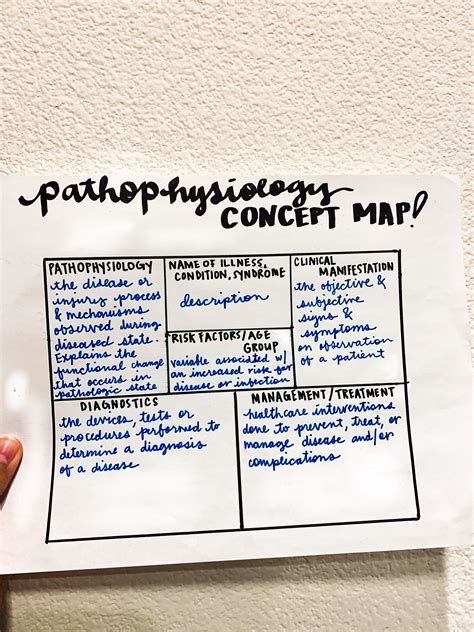 pathophysiology
CONCEPT MAP!
PATHOPHYSIOLOGY
the disease or
injury process
& mechanisms
observed during
diseased state.
Explains the
functional change
that occurs in
pathologic state
NAME OF ILLNESS,
CONDITION, SYNDROME
description
RISK FACTORS/AGE
GROUP
variable associated w/
an increased risk for
disease or infection
CLINICAL
MANIFESTATION
the objective &
subjective
signs &
symptoms
on observation
of a patient
DIAGNOSTICS
the devices, tests or
procedures performed to
determine a diagnosis
of a disease
MANAGEMENT/TREATMENT
healthcare interventions
done to prevent, treat, or
manage disease and/or
complications